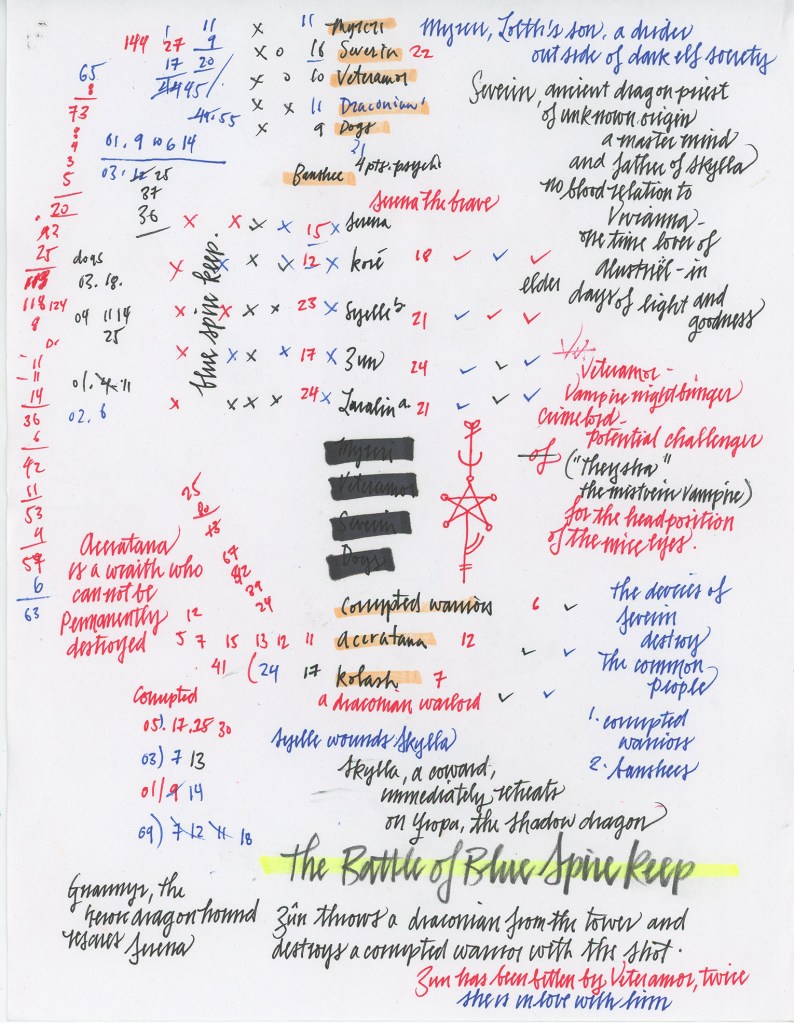 Myzeri, Lolth's son, a drider
outside of dark elf society
144 27 9
17 20
11 Myzeri
16 Severin 22
10 Veteramor
11 Draconians
9 Dogs
21
4 pts. psych.
Banshee
Severin, ancient dragon priest
of unknown origin
a master mind
and father of Skylla
no blood relation to
Vivianna -
one time lover of
Alustriël - in
elder days of light and
goodness
65
8
73
8
4
3
5
20
01. 9 10 6 14
03. 12 25
37
36
Serena the brave
blue spire keep.
15 Serena
12 Koré 18
23 Syelle 21
17 Zun 24
24 21
dogs
03. 18.
09 11 14
25
01. 4 11
02. 6
25
118 124
8
11
11
14
36
6
42
11
53
4
57
6
63
Veteramor -
Vampire nightbringer
crimelord -
potential challenger
of ("Theysha"
the mistvein vampire)
for the head position
of the mice eyes.
Myzeri
Veteramor
Severin
Dogs
25
Aceratana
is a wraith who
can not be
permanently
destroyed
67
42
39
24
12
5 7 15 13 12 11
41 (24 17
corrupted warriors 6
aceratana 12
kolash 7
a draconian warlord
the devices of
Severin
destroy
the common
people
1. corrupted
warriors
2. banshees
Corrupted
05). 17. 25 30
03) 7 13
01) 9 14
09) 7 12 11 18
Syelle wounds Skylla
Skylla, a coward,
immediately retreats
on Yropa, the shadow dragon
The Battle of Blue Spire Keep
Gnannyr, the
heroic dragon hound
rescues Serena
Zûn throws a draconian from the tower and
destroys a corrupted warrior with the shot.
Zun has been bitten by Veteramor, twice
she is in love with him